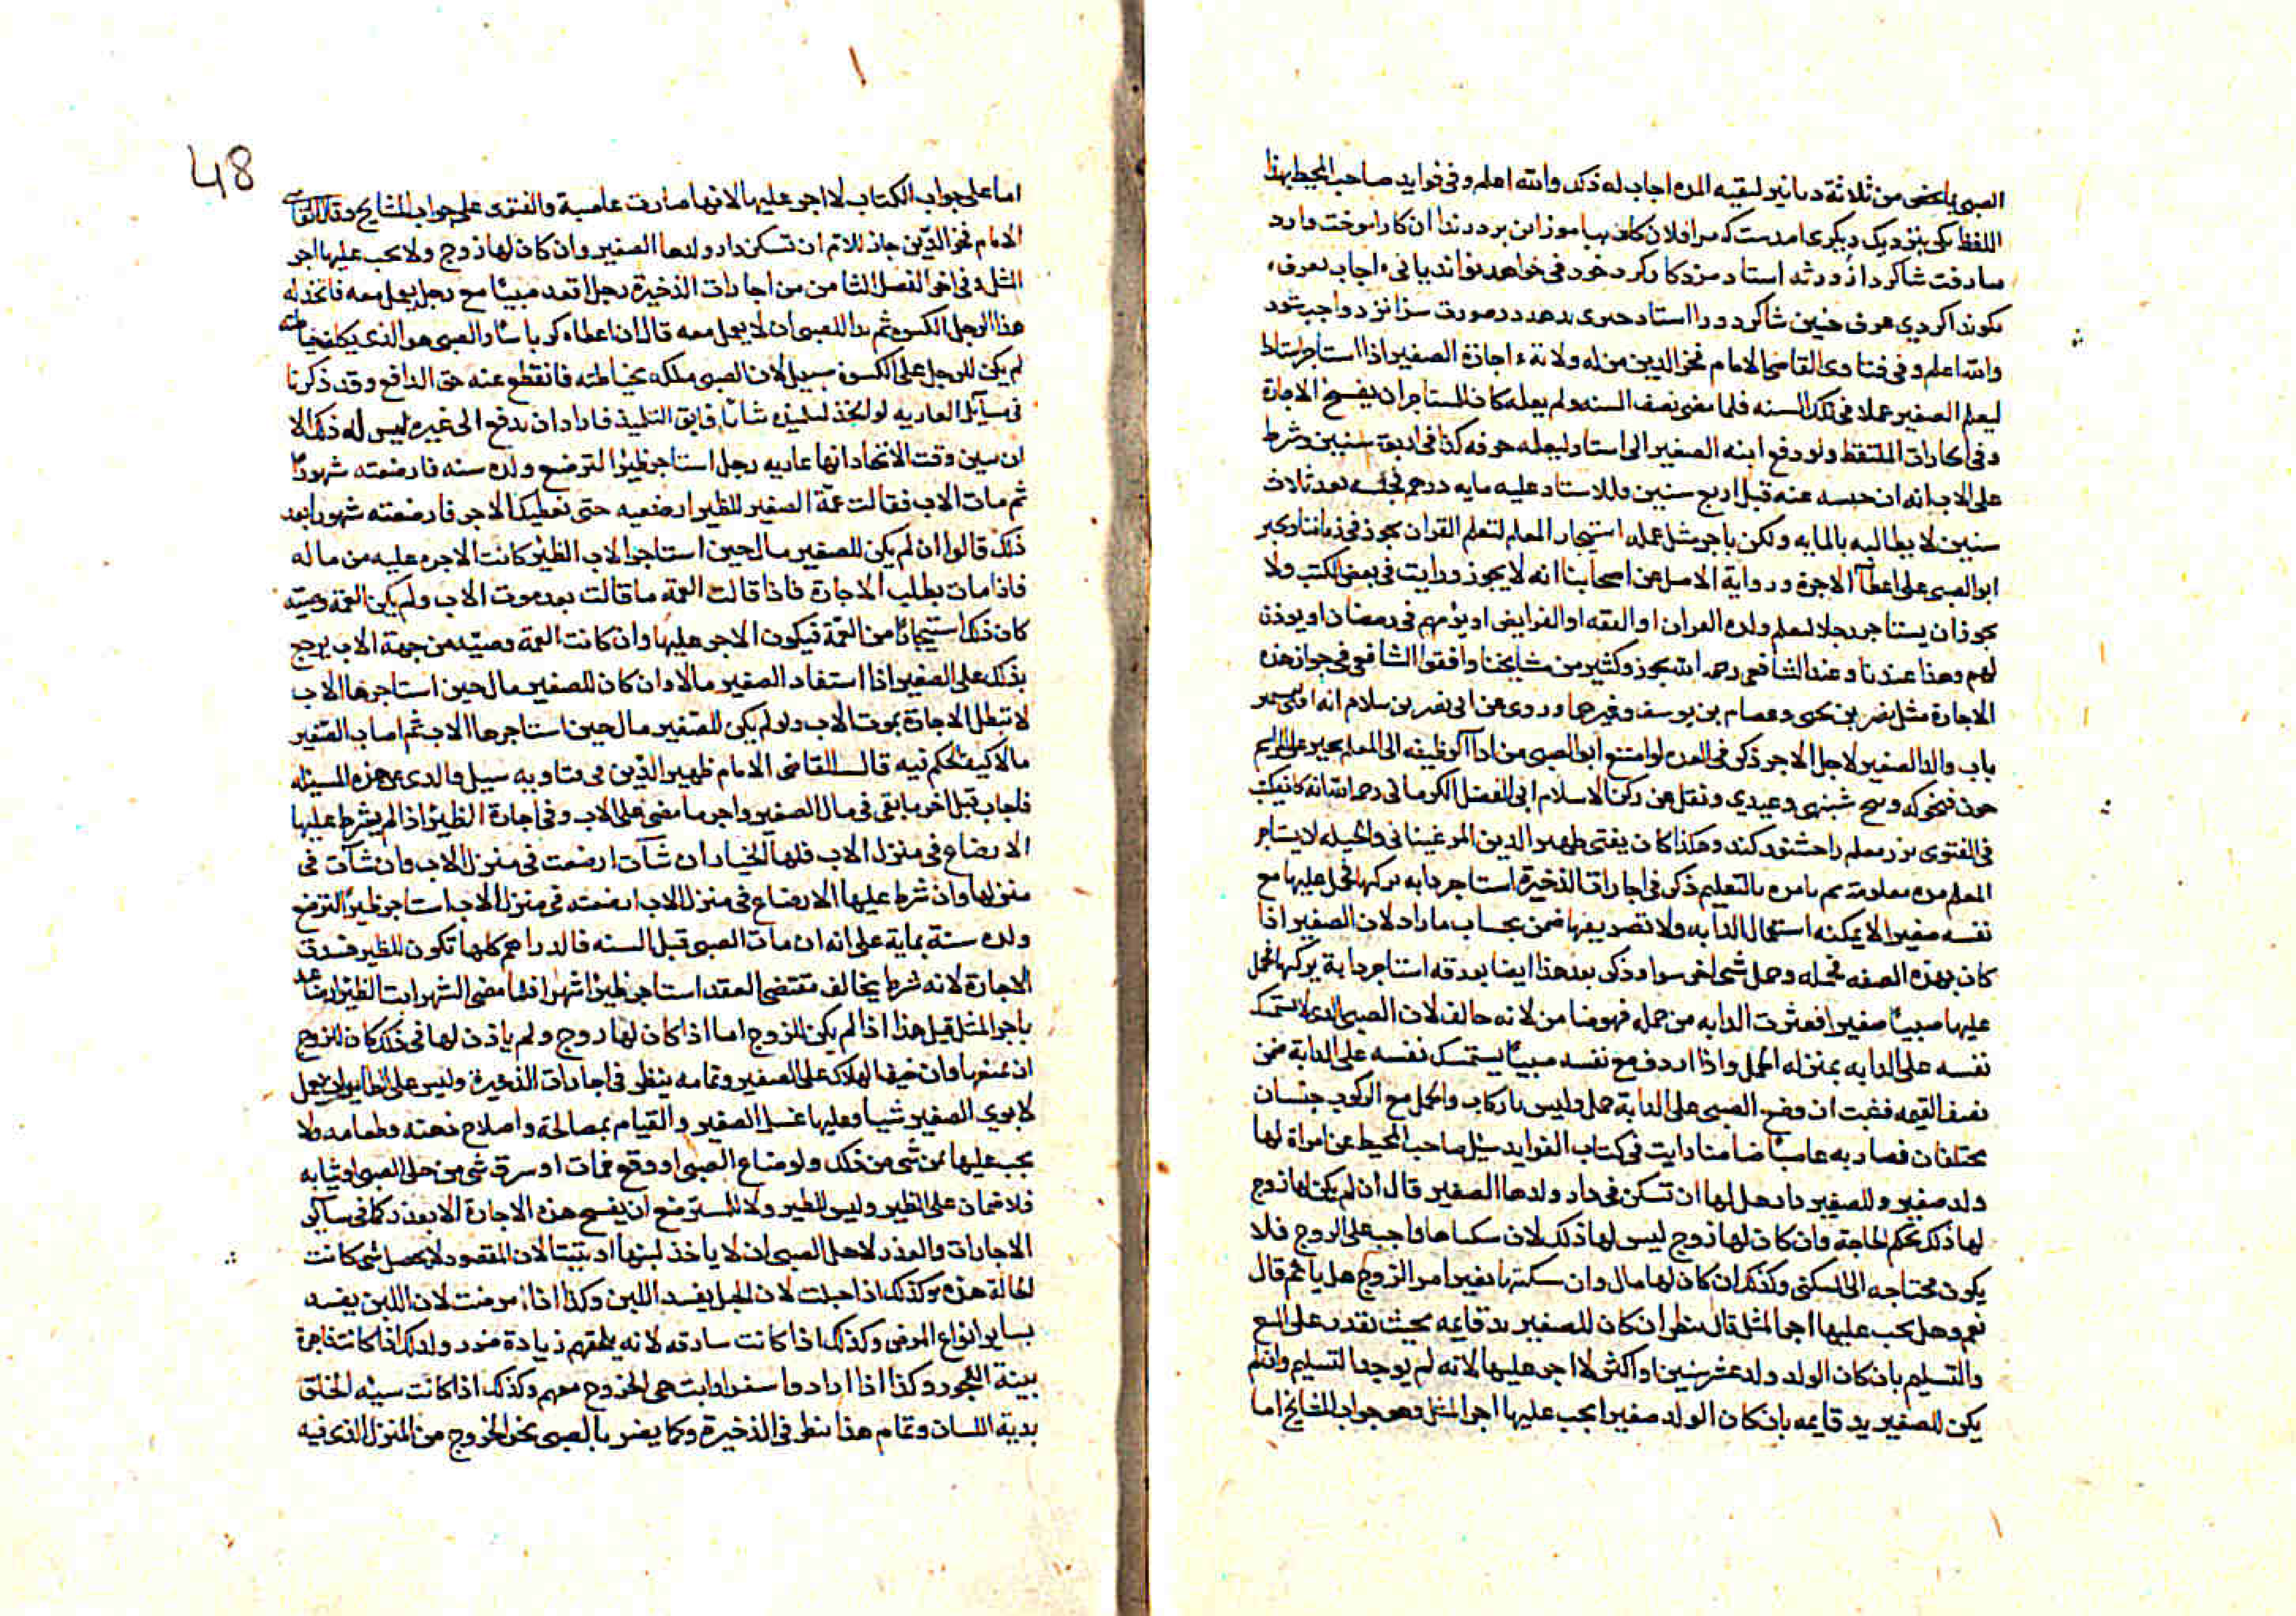 الصبى بما يخص من ثلاثة دنانير لبقية المدة اجاب له ذلك والله اعلم وفى فوايد صاحب المحيط بهذا
اللفظ يكى بنزديك ديكرى امدست كه مرا فلان كار بياموز اين برد
شاكرد استاد مزد كار كرد خود فى خواهد تواند يا نى اجاب
شاكرد ورا استاد درصورت واجب شود
والله اعلم وفى فتاوى القاضى الامام فخر الدين اجازة الصغير اذا استاجر استاذا
ليعلم الصغير عملا فى تلك السنه فلما مضى نصف السنه ولم يعلمه كان للمستاجر ان يفسخ الاجارة
وفى اجارات الملتقط ولو دفع ابنه الصغير الى استاد ليعلمه حرفه كذا فى اربع سنين وشرط
على الاب انه ان حبسه عنه قبل اربع سنين فللاستاد عليه مايه درهم فحبسه بعد ثلاث
سنين لا يطالبه بالمايه ولكن باجر مثل عمله استيجار المعلم لتعليم القران يجوز فى زماننا ويجبر
ابو الصبى على اعطآ الاجرة ورواية الاصل عن اصحابنا انه لا يجوز ورايت فى بعض الكتب ولا
يجوز ان يستاجر رجلا ليعلم ولده القران او الفقه او الفرايض او يؤمهم فى رمضان او يوذن
لهم وهذا عندنا وعند الشافعى رحمه الله يجوز وكثير من مشايخنا وافقوا الشافعى فى جواز هذه
الاجارة مثل نصر بن يحيى وعصام بن يوسف وغيرهما وروى عن ابى نصر بن سلام انه افتى
باب والد الصغير لاجل الاجر ذكر فى العدة لو امتنع ابو الصبى من ادآ الوظيفه الى المعلم يجبر على
شبنهى وعيدي ونقل عن ركن الاسلام ابى الفضل الكرمانى رحمه الله انه كان يكتب
فى الفتوى معلم را خشنود كند وهكذا كان يفتى ظهير الدين المرغينانى والحيله ان يستاجر
المعلم مدة معلومة ثم يامره بالتعليم ذكر فى اجارات الذخيرة استاجر دابه يركبها فحمل عليها مع
نفسه صغيرا لا يمكنه استعمال الدابه ولا تصريفها ضمن بحساب ما زاد لان الصغير اذا
كان بهذه الصفه فحمله وحمل شى اخر سوا وذكر بعد هذا ايضا استاجر دابة يركبها فحمل
عليها صبيا صغيرا فعثرت الدابه من حمله فهو ضامن لانه خالف لان الصبى الذى لا يستمسك
نفسه على الدابه بمنزله الحمل واذا اردف مع نفسه صبيا يستمسك نفسه على الدابة ضمن
نصف القيمه فثبت ان وضع الصبى على الدابة حمل وليس باركاب والحمل مع الركوب جنسان
مختلفان فصار به غاصبا ضامنا رايت فى كتاب الفوايد سيل صاحب المحيط عن امراة لها
ولد صغير وللصغير دار هل لها ان تسكن فى دار ولدها الصغير قال ان لم يكن لها زوج
لها ذلك بحكم الحاجة وان كان لها زوج ليس لها ذلك لان سكناها واجب على الزوج فلا
يكون محتاجه الى السكنى وكذلك ان كان لها مال وان سكنتها بغير امر الزوج هل ياثم قال
نعم وهل يجب عليها اجر المثل قال ينظر ان كان للصغير يد قايمه بحيث تقدر على المنع
والتسليم بان كان الولد ولد عشر سنين او اكثر لا اجر عليها لانه لم يوجد التسليم وان لم
يكن للصغير يد قايمه بان كان الولد صغيرا يجب عليها اجر المثل وهو جواب المشايخ اما
اما على جواب الكتاب لا اجر عليها لانها صارت غاصبة والفتوى على جواب المشايخ وقال القاضى
الامام فخر الدين جاز للام ان تسكن دار ولدها الصغير وان كان لها زوج ولا يجب عليها اجر
المثل وفى اخر الفصل الثامن من اجارات الذخيرة رجل اقعد صبيا مع رجل يعمل معه فاتخذ له
هذا الرجل الكسوة ثم بدا للصبى ان لا يعمل معه قال ان اعطاه كرباسا والصبى هو الذى يكلف خياطته
لم يكن للرجل على الكسوة سبيل لان الصبى ملكه بخياطته فانقطع عنه حق الدافع وقد ذكرنا
فى مسآيل العاريه لو اتخذ لتلميذه ثيابا فابق التلميذ فاراد ان يدفع الى غيره ليس له ذلك الا
ان يبين وقت الاتخاذ انها عاريه رجل استاجر ظيرا لترضع ولده سنه فارضعته شهورا
ثم مات الاب فقالت عمة الصغير للظير ارضعيه حتى نعطيك الاجر فارضعته شهورا بعد
ذلك قالوا ان لم يكن للصغير مال حين استاجر الاب الظير كانت الاجره عليه من ماله
فاذا مات بطلت الاجارة فاذا قالت العمة ما قالت بعد موت الاب ولم يكن العمة وصيته
كان ذلك استيجارا من العمة فيكون الاجر عليها وان كانت العمة وصيته من جهة الاب يرجع
بذلك على الصغير اذا استفاد الصغير مالا وان كان للصغير مال حين استاجرها الاب
لا تبطل الاجارة بموت الاب ولو لم يكن للصغير مال حين استاجرها الاب ثم اصاب الصغير
مالا كيف الحكم فيه قال القاضى الامام ظهير الدين فى فتاويه سيل والدى عن هذه المسيله
فاجاب قيل اجر ما بقى فى مال الصغير واجر ما مضى على الاب وفى اجارة الظير اذا لم يشرط عليها
الارضاع فى منزل الاب فلها الخيار ان شآت ارضعت فى منزل الاب وان شآت فى
منزلها وان شرط عليها الارضاع فى منزل الاب ارضعته فى منزل الاب استاجر ظيرا لترضع
ولده سنة بماية على انه ان مات الصبى قبل السنه فالدراهم كلها تكون للظير فسدت
الاجارة لانه شرط يخالف مقتضى العقد استاجر ظيرا شهرا فلما مضى الشهر ابت الظير ارضاعه
باجر المثل قيل هذا اذا لم يكن لها زوج اما اذا كان لها زوج ولم ياذن لها فى ذلك كان للزوج
ان يمنعها وان خيف الهلاك على الصغير وتمامه ينظر فى اجارات الذخيرة وليس على الظير ان يعمل
لابوي الصغير شيا وعليها غسل الصغير والقيام بمصالحة واصلاح دهنه وطعامه ولا
يجب عليها ثمن شى من ذلك ولو ضاع الصبى او وقع فمات او سرق شى من حلى الصبى او ثيابه
فلا ضمان على الظير وليس للظير ولا للمسترضع ان يفسخ هذه الاجارة الا بعذر كما فى ساير
الاجارات والعذر لاهل الصبى ان لا ياخذ لبنها او يتقيا لان المقصود لا يحصل متى كانت
الحالة هذه وكذلك اذا حبلت لان الحبل يفسد اللبن وكذا اذا مرضت لان اللبن يفسد
بساير انواع المرض وكذلك اذا كانت سارقه لانه يلحقهم زيادة ضرر وكذلك اذا كانت فاجرة
بينة الفجور وكذا اذا ارادوا سفرا وابت هى الخروج معهم وكذلك اذا كانت سيئه الخلق
بذية اللسان وتمام هذا ينظر فى الذخيرة وكما يضر بالصبى نحو الخروج من المنزل الذى فيه
48